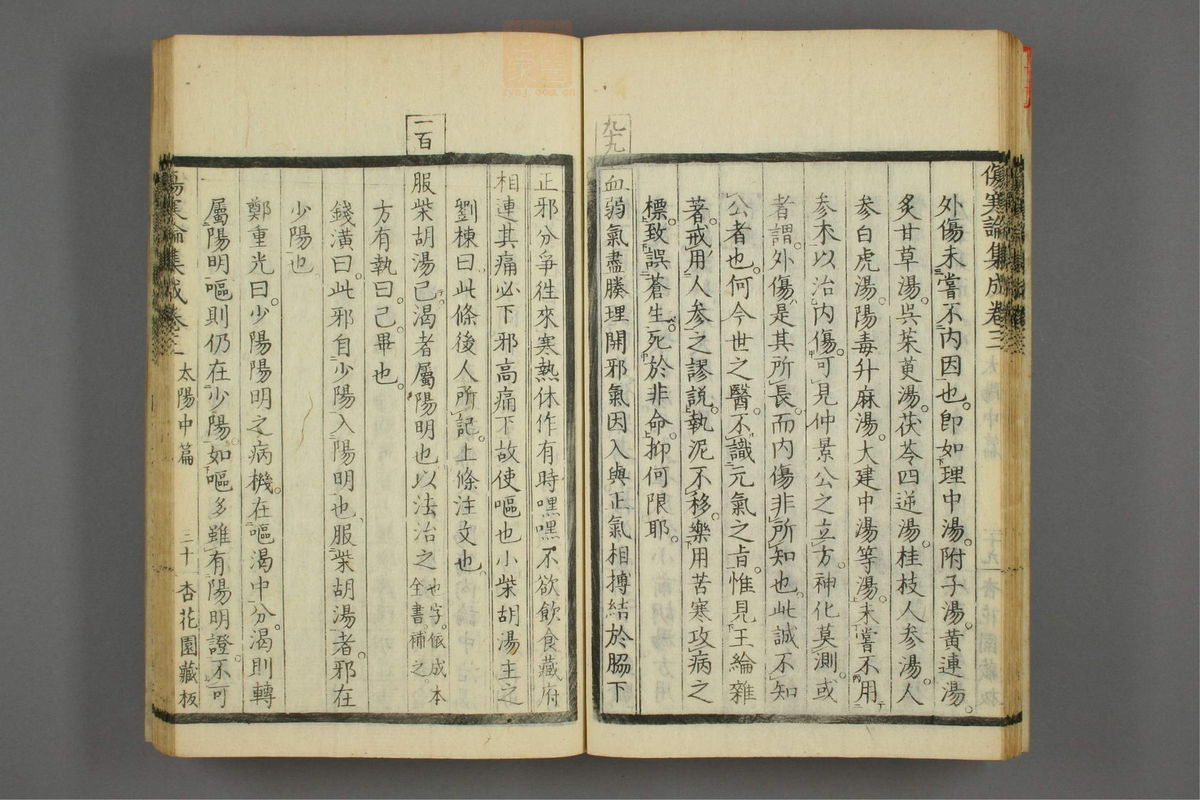 傷寒論集成卷三
外傷未嘗不內因也。卽如理中湯。附子湯。黃連湯。
炙甘草湯。吳茱萸湯。茯苓四逆湯。桂枝人參湯。人
參白虎湯。陽毒升麻湯。大建中湯等湯。未嘗不用
參朮以治內傷。可見仲景公之立方。神化莫測。或
者謂。外傷是其所長。而內傷非所知也。此誠不知
公者也。何今世之醫。不識元氣之旨。惟見王綸雜
著。戒用人參之謬說。執泥不移。樂用苦寒攻病之
標。致誤蒼生。死於非命。抑何限耶。
九九
血弱氣盡腠理開邪氣因入與正氣相摶結於脇下
正邪分爭徃來寒熱休作有時嘿嘿不欲飮食藏府
相連其痛必下邪高痛下故使嘔也小柴胡湯主之
劉棟曰。此條後人所記。上條注文也。
一百
服柴胡湯已渴者屬陽明也以法治之 也字。依成本全書。補之。
方有執曰。已。畢也。
錢潢曰。此邪自少陽入陽明也。服柴胡湯者。邪在
少陽也
鄭重光曰。少陽陽明之病機。在嘔渴中分。渴則轉
屬陽明。嘔則仍在少陽。如嘔多雖有陽明證。不可
傷寒論集成 卷三 太陽中篇 三十 杏花園藏板